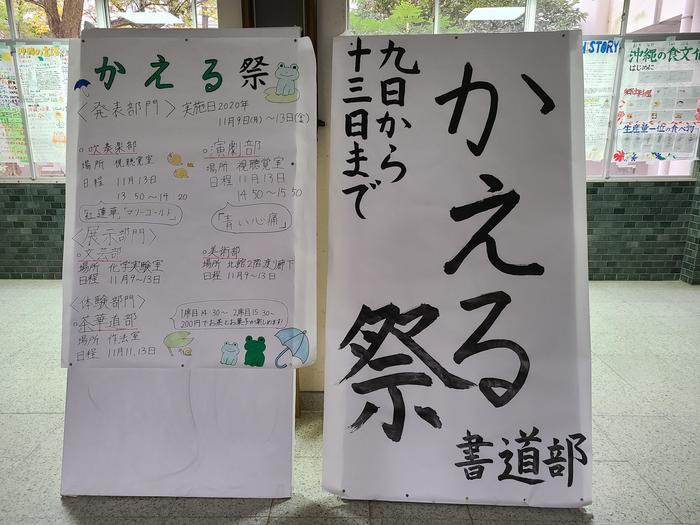 かえる祭
〈発表部門〉 実施日2020年
11月9日(月)～13日(金)
○吹奏楽部
場所 視聴覚室
日程 11月13日
13:50～14:20
「紅蓮華」「マリーゴールド」
○演劇部
場所 視聴覚室
日程 11月13日
14:50～15:50
「青い心痛」
〈展示部門〉
○文芸部
場所 化学実験室
日程 11月9～13日
○美術部
場所 北館2階渡り廊下
日程 11月9～13日
〈体験部門〉
○茶華道部
場所 作法室
日程 11月11,13日
1席目14:30～ 2席目15:30～
200円でお茶とお菓子が楽しめます!
かえる祭
九日から
十三日まで
書道部
STORY
沖縄の食文化
はじめに
生産量一位の食べ物